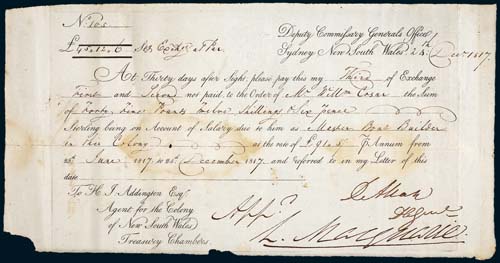 Deputy Commissary Generals Office
£45.12.6
Sydney New South Wales 25th Decr 1817.
At Thirty days after Sight, please pay this my Third of Exchange
First and Second not paid to the Order of Mr Willm Cosar the Sum
of Forty Five Pounds Twelve Shillings & Six pence
Sterling being on Account of Salary due to him as Master Boat Builder
in this Colony at the rate of Pr Annum from
June 1817 to December 1817 and referred to in my Letter of this
date
To H. J Addington Esqr
Agent for the Colony
of New South Wales
Treasury Chambers.
Appd.
L. Macquarie